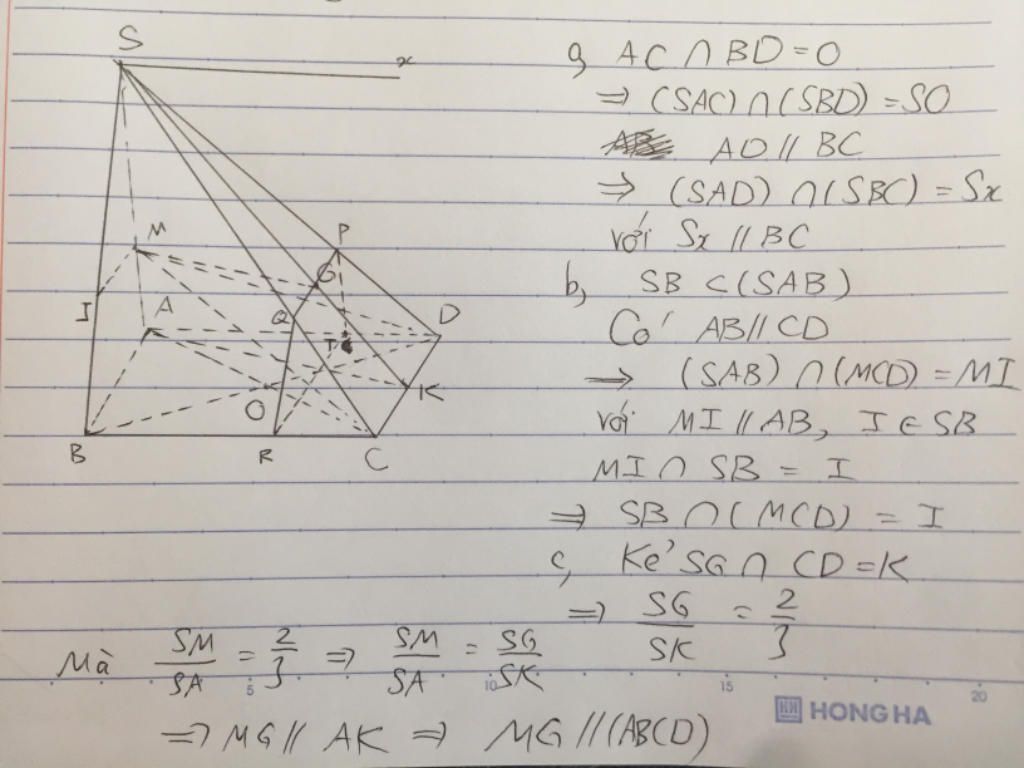 S
x
M
P
G
I
A
Q
D
T
O
K
B
R
C
a, AC ∩ BD = O
⇒ (SAC) ∩ (SBD) = SO
AD // BC
⇒ (SAD) ∩ (SBC) = Sx
với Sx // BC
b, SB ⊂ (SAB)
Có AB // CD
⇒ (SAB) ∩ (MCD) = MI
với MI // AB, I ∈ SB
MI ∩ SB = I
⇒ SB ∩ (MCD) = I
c, Kẻ SG ∩ CD = K
⇒ SG/SK = 2/3
Mà SM/SA = 2/3 ⇒ SM/SA = SG/SK
⇒ MG // AK ⇒ MG // (ABCD)
5 10 15 20
HONG HA